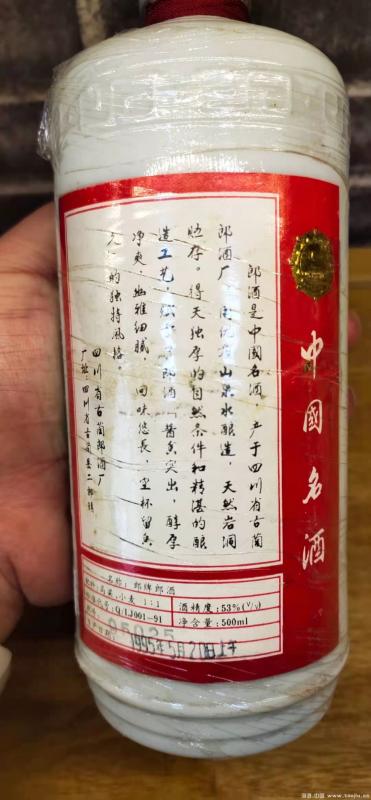 中國名酒
郎酒是中國名酒，产于四川省古蔺
郎酒厂
山泉水酿造，天然岩洞
贮存。得天独厚的自然条件和精湛的酿
造工艺，
郎酒，酱香突出，醇厚
净爽，幽雅细腻，回味悠長，空杯留香
的独特風格。
四川省古蔺郎酒厂
厂址：四川省古蔺县二郎镇
名称：郎牌郎酒
配料：高粱，小麦 1:1
酒精度：53%(V/V)
标准代号：Q/LJ001-91
净含量：500ml
批号：
95025
生产日期
1995年5月20日上午